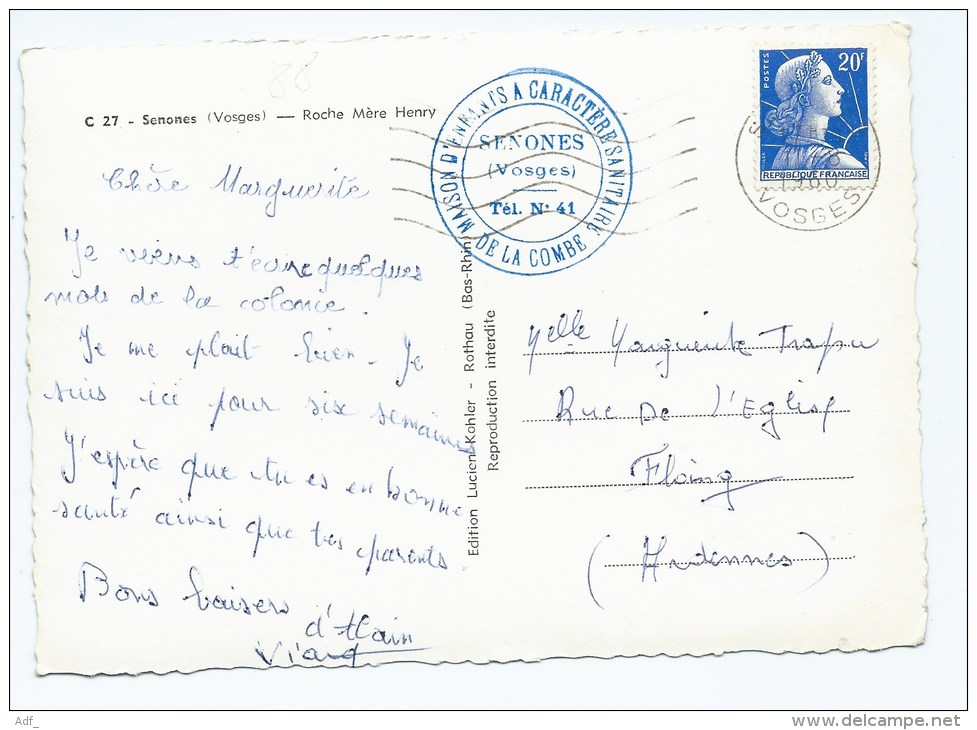 88
C 27 - Senones (Vosges) — Roche Mère Henry
Chère Marguerite
Je viens t'écrire quelques
mots de la colonie.
Je me plait bien. Je
suis ici pour six semaines
J'espère que tu es en bonne
santé ainsi que tes parents
Bons baisers
d'Alain
MAISON D'ENFANTS A CARACTÈRE SANITAIRE
SENONES
(Vosges)
Tél. N° 41
DE LA COMBE
Edition Lucien Kohler - Rothau (Bas-Rhin)
Reproduction interdite
POSTES
20F
REPUBLIQUE FRANCAISE
1960
VOSGES
Melle Marguerite
Rue De l'Eglise
Floing
(Ardennes)
Adf_
delcampe.net